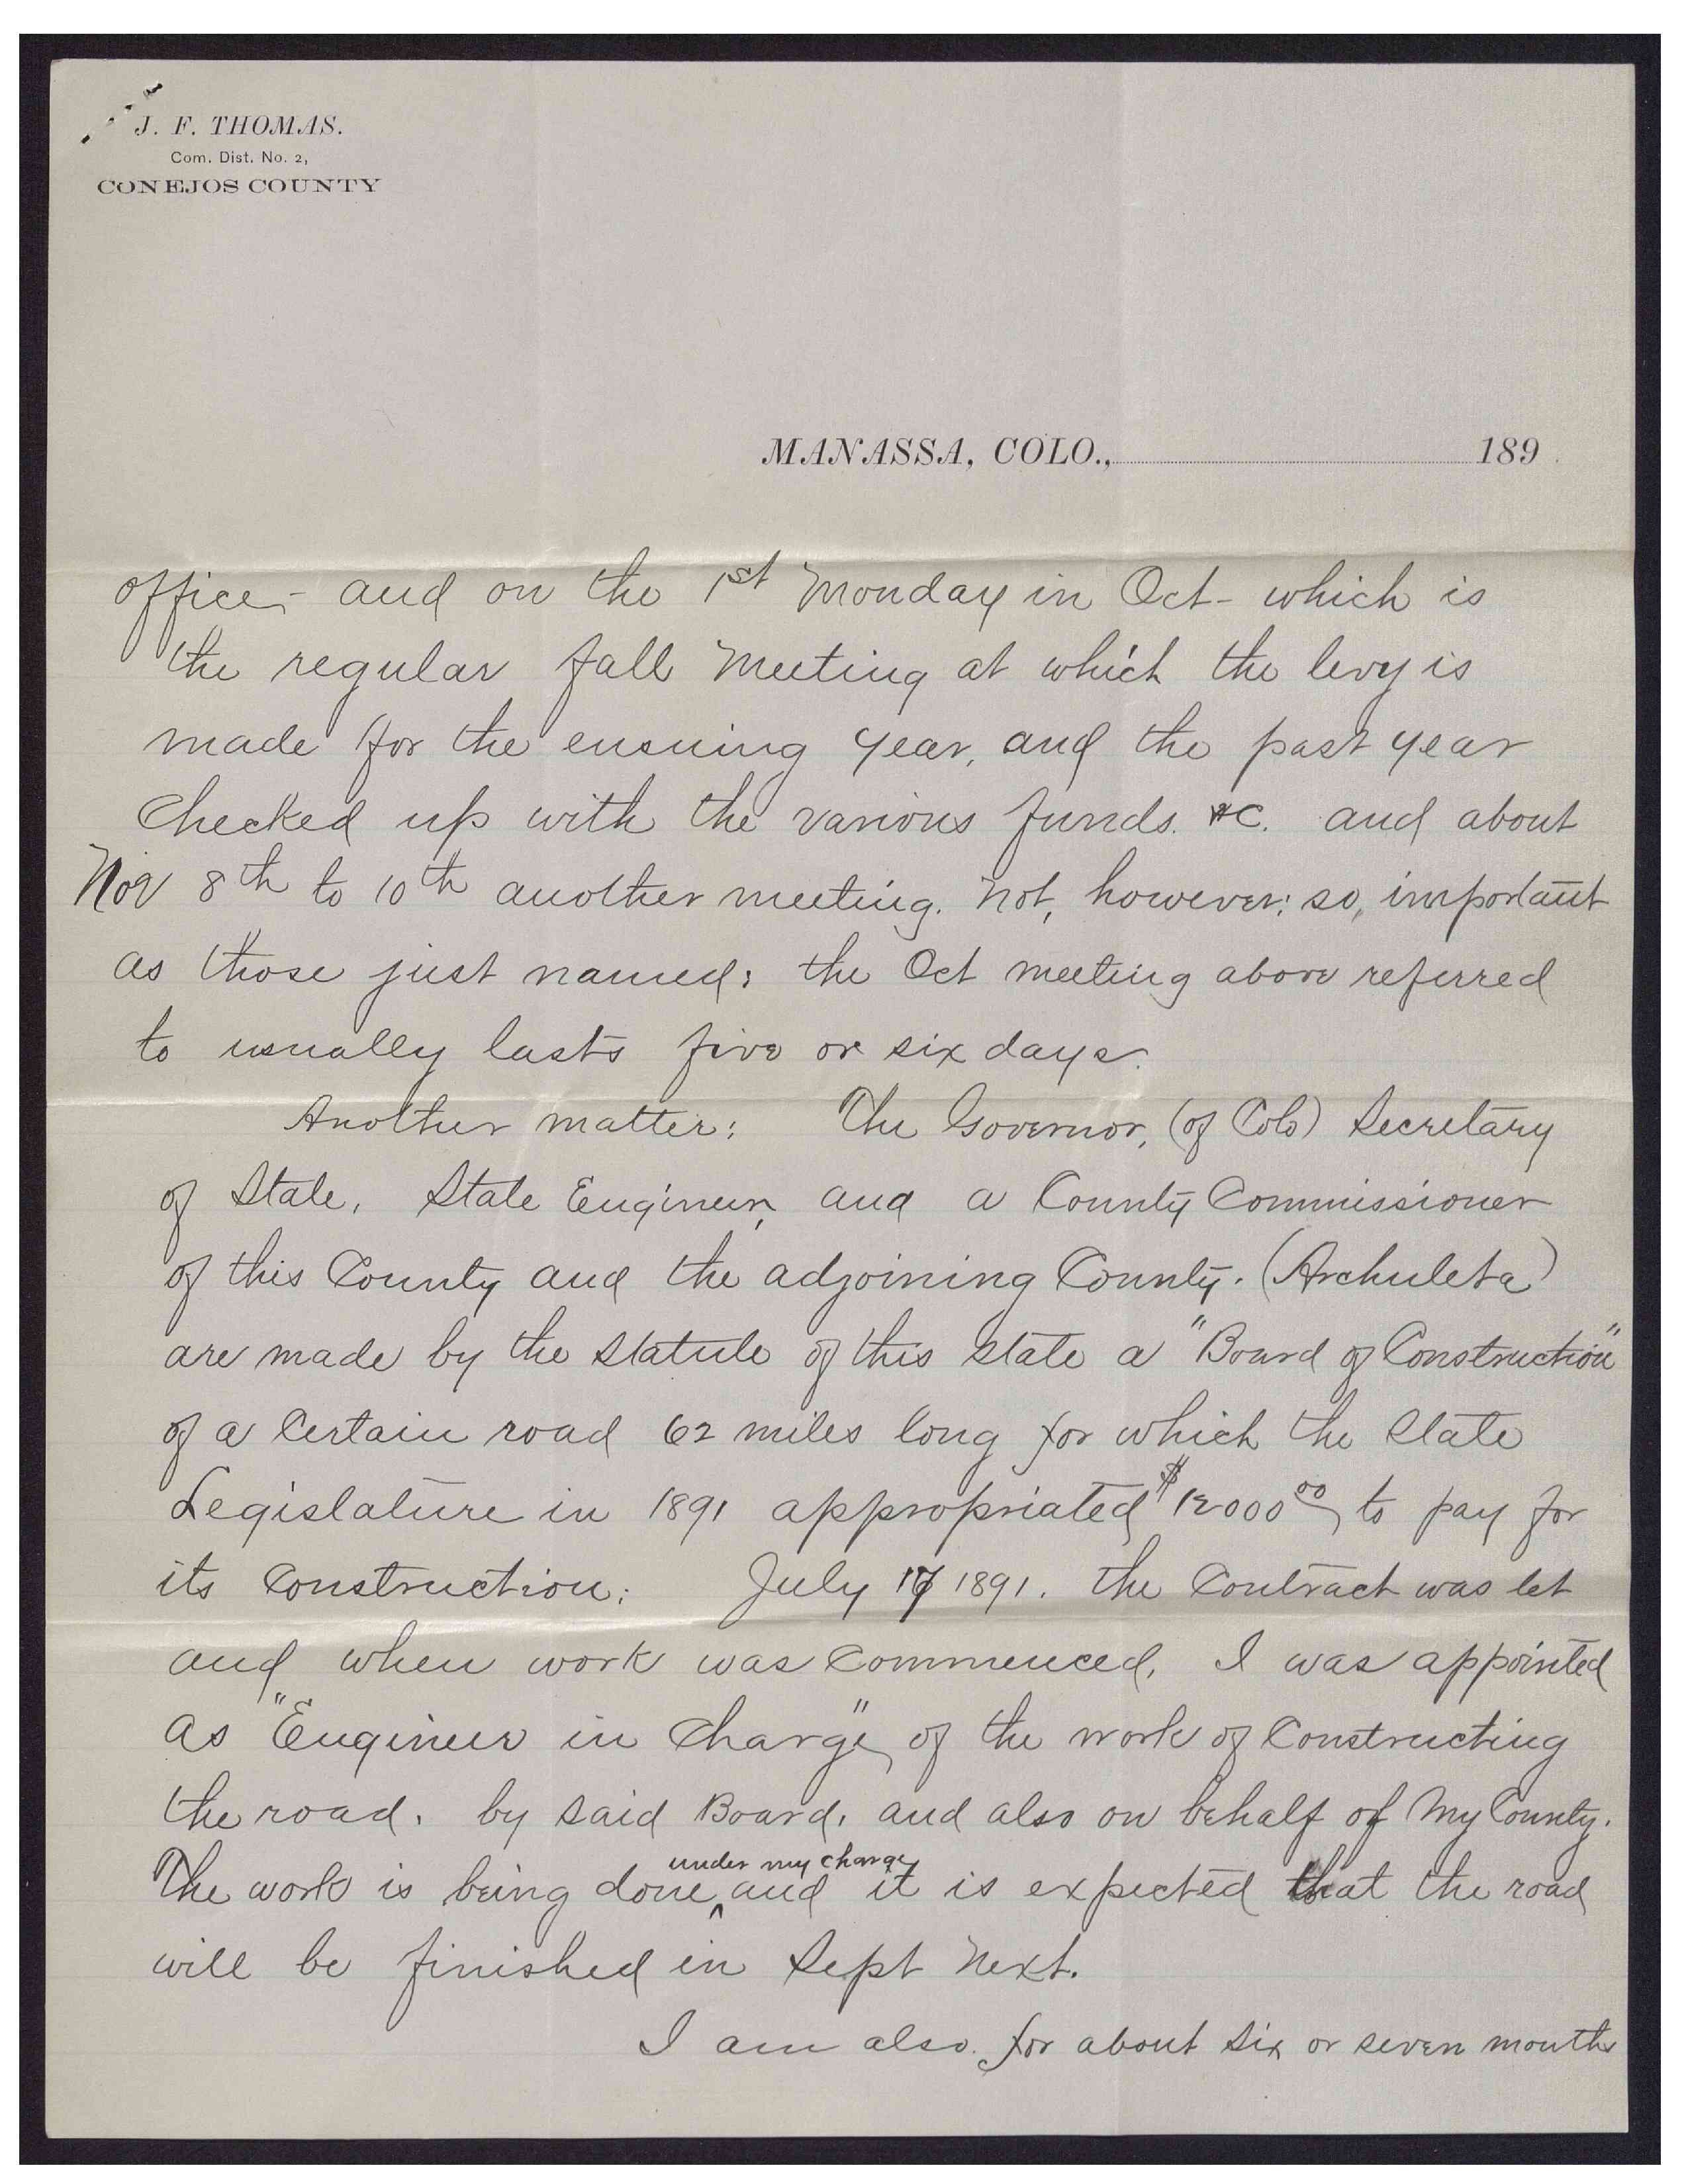 J. F. THOMAS.
Com. Dist. No. 2,
CONEJOS COUNTY
MANASSA, COLO., 189
office - and on the 1st Monday in Oct - which is
the regular fall meeting at which the levy is
made for the ensuing year, and the past year
checked up with the various funds. &C. and about
Nov 8th to 10th another meeting. not, however; so, important
as those just named; the Oct meeting above referred
to usually lasts five or six days.
Another matter: The Governor, (of Colo) Secretary
of State, State Engineer, and a County Commissioner
of this County and the adjoining County. (Archuleta)
are made by the statute of this state a "Board of Construction"
of a certain road 62 miles long for which the State
Legislature in 1891 appropriated $12000 00 to pay for
its construction; July 17 1891. the contract was let
and when work was commenced, I was appointed
as "Engineer in charge" of the work of constructing
the road, by said Board, and also on behalf of my County.
under my charge
The work is being done ^ and it is expected that the road
will be finished in Sept next.
I am also for about six or seven months